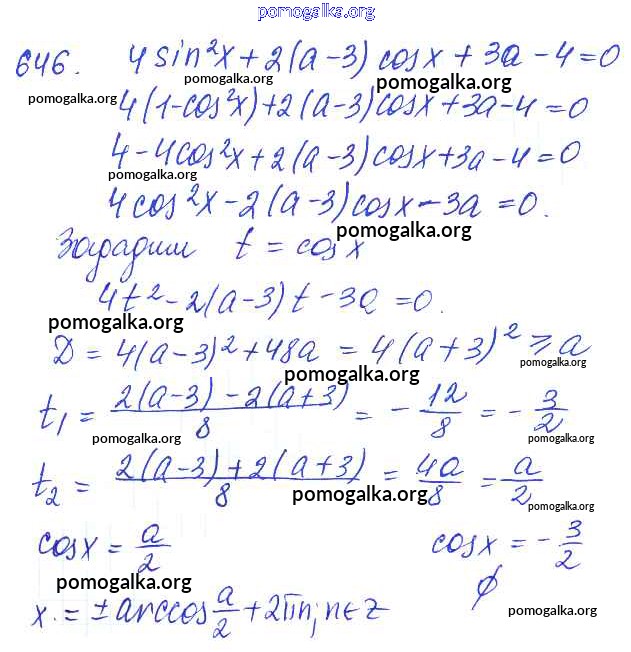 pomogalka.org
646. 4 sin²x + 2(a - 3) cosx + 3a - 4 = 0
pomogalka.org pomogalka.org pomogalka.org
4(1 - cos²x) + 2(a - 3)cosx + 3a - 4 = 0
4 - 4cos²x + 2(a - 3)cosx + 3a - 4 = 0
pomogalka.org
4cos²x - 2(a - 3)cosx - 3a = 0.
pomogalka.org
t = cos x
4t² - 2(a - 3)t - 3a = 0.
pomogalka.org
D = 4(a - 3)² + 48a = 4(a + 3)² ⩾ a
pomogalka.org pomogalka.org
t₁ = (2(a - 3) - 2(a + 3))/8 = - 12/8 = - 3/2
pomogalka.org pomogalka.org
t₂ = (2(a - 3) + 2(a + 3))/8 = 4a/8 = a/2
pomogalka.org pomogalka.org
cosx = a/2 cosx = - 3/2
pomogalka.org ∅
x = ± arccos a/2 + 2πn; n∈z pomogalka.org